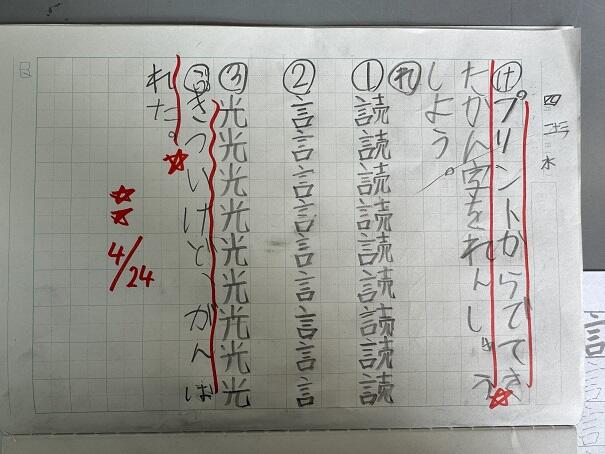 四 木
け プリントからでてき
たかん字をれんしゅう
しよう。
れ
① 読読読読読読読読読
② 言言言言言言言言言
③ 光光光光光光光光光
ぶ きついけど、がんば
れた。
4/24